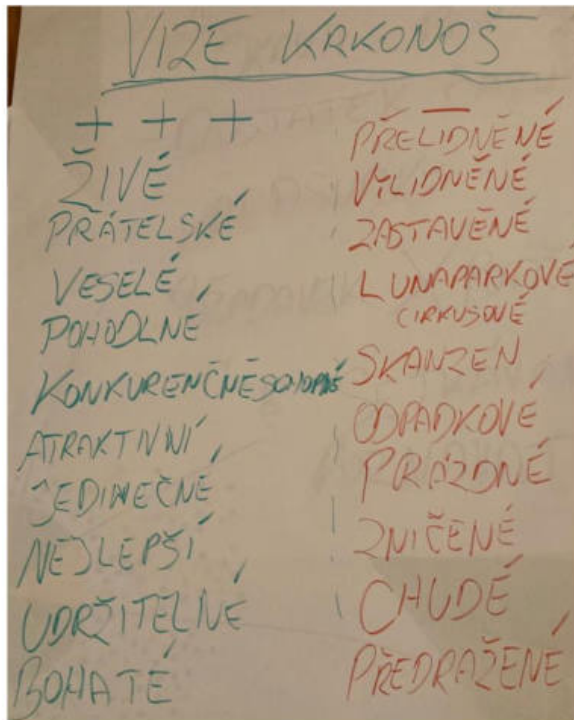 VIZE KRKONOŠ
+ + +
ŽIVÉ
PŘÁTELSKÉ
VESELÉ
POHODLNÉ
KONKURENČNĚSCHOPNÉ
ATRAKTIVNÍ
JEDINEČNÉ
NEJLEPŠÍ
UDRŽITELNÉ
BOHATÉ
—
PŘELIDNĚNÉ
VYLIDNĚNÉ
ZASTAVĚNÉ
LUNAPARKOVÉ
CIRKUSOVÉ
SKANZEN
ODPADKOVÉ
PRÁZDNÉ
ZNIČENÉ
CHUDÉ
PŘEDRAŽENÉ